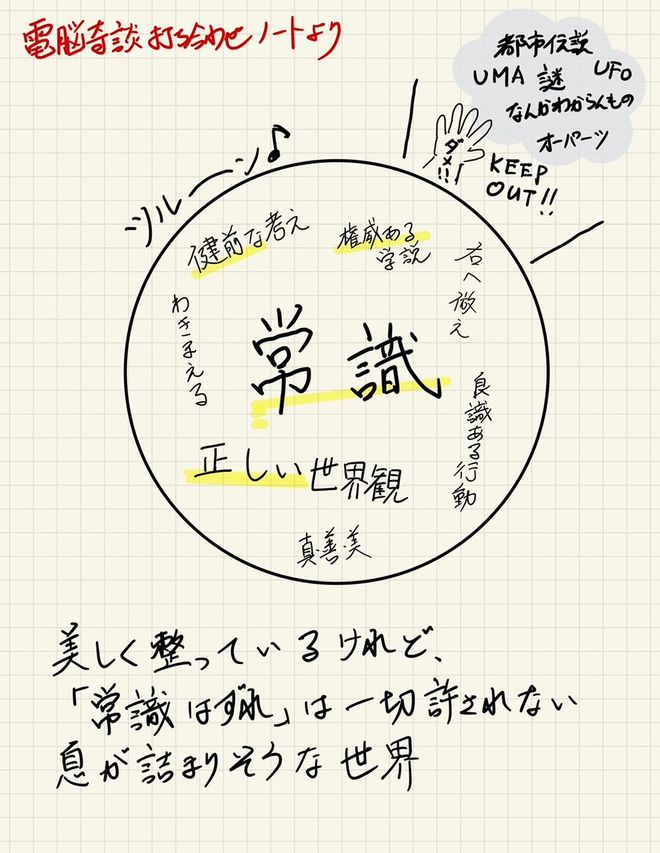 電脳奇談打ち合わせノートより
都市伝説
UMA 謎 UFO
なんかわからんもの
オーパーツ
ダメ!!
KEEP
OUT!!
ツルーン♪
健前な考え
権威ある
学説
右へ放え
わきまえる
常識
良識ある行動
正しい世界観
真・善・美
美しく整っているけれど、
「常識はずれ」は一切許されない
息が詰まりそうな世界